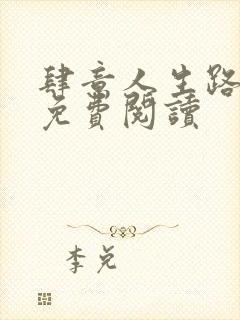 肆意人生路
免費閱讀
李兌